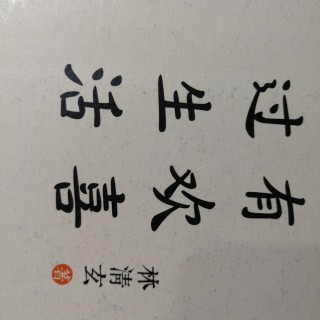 过生活
有欢喜
林清玄 著